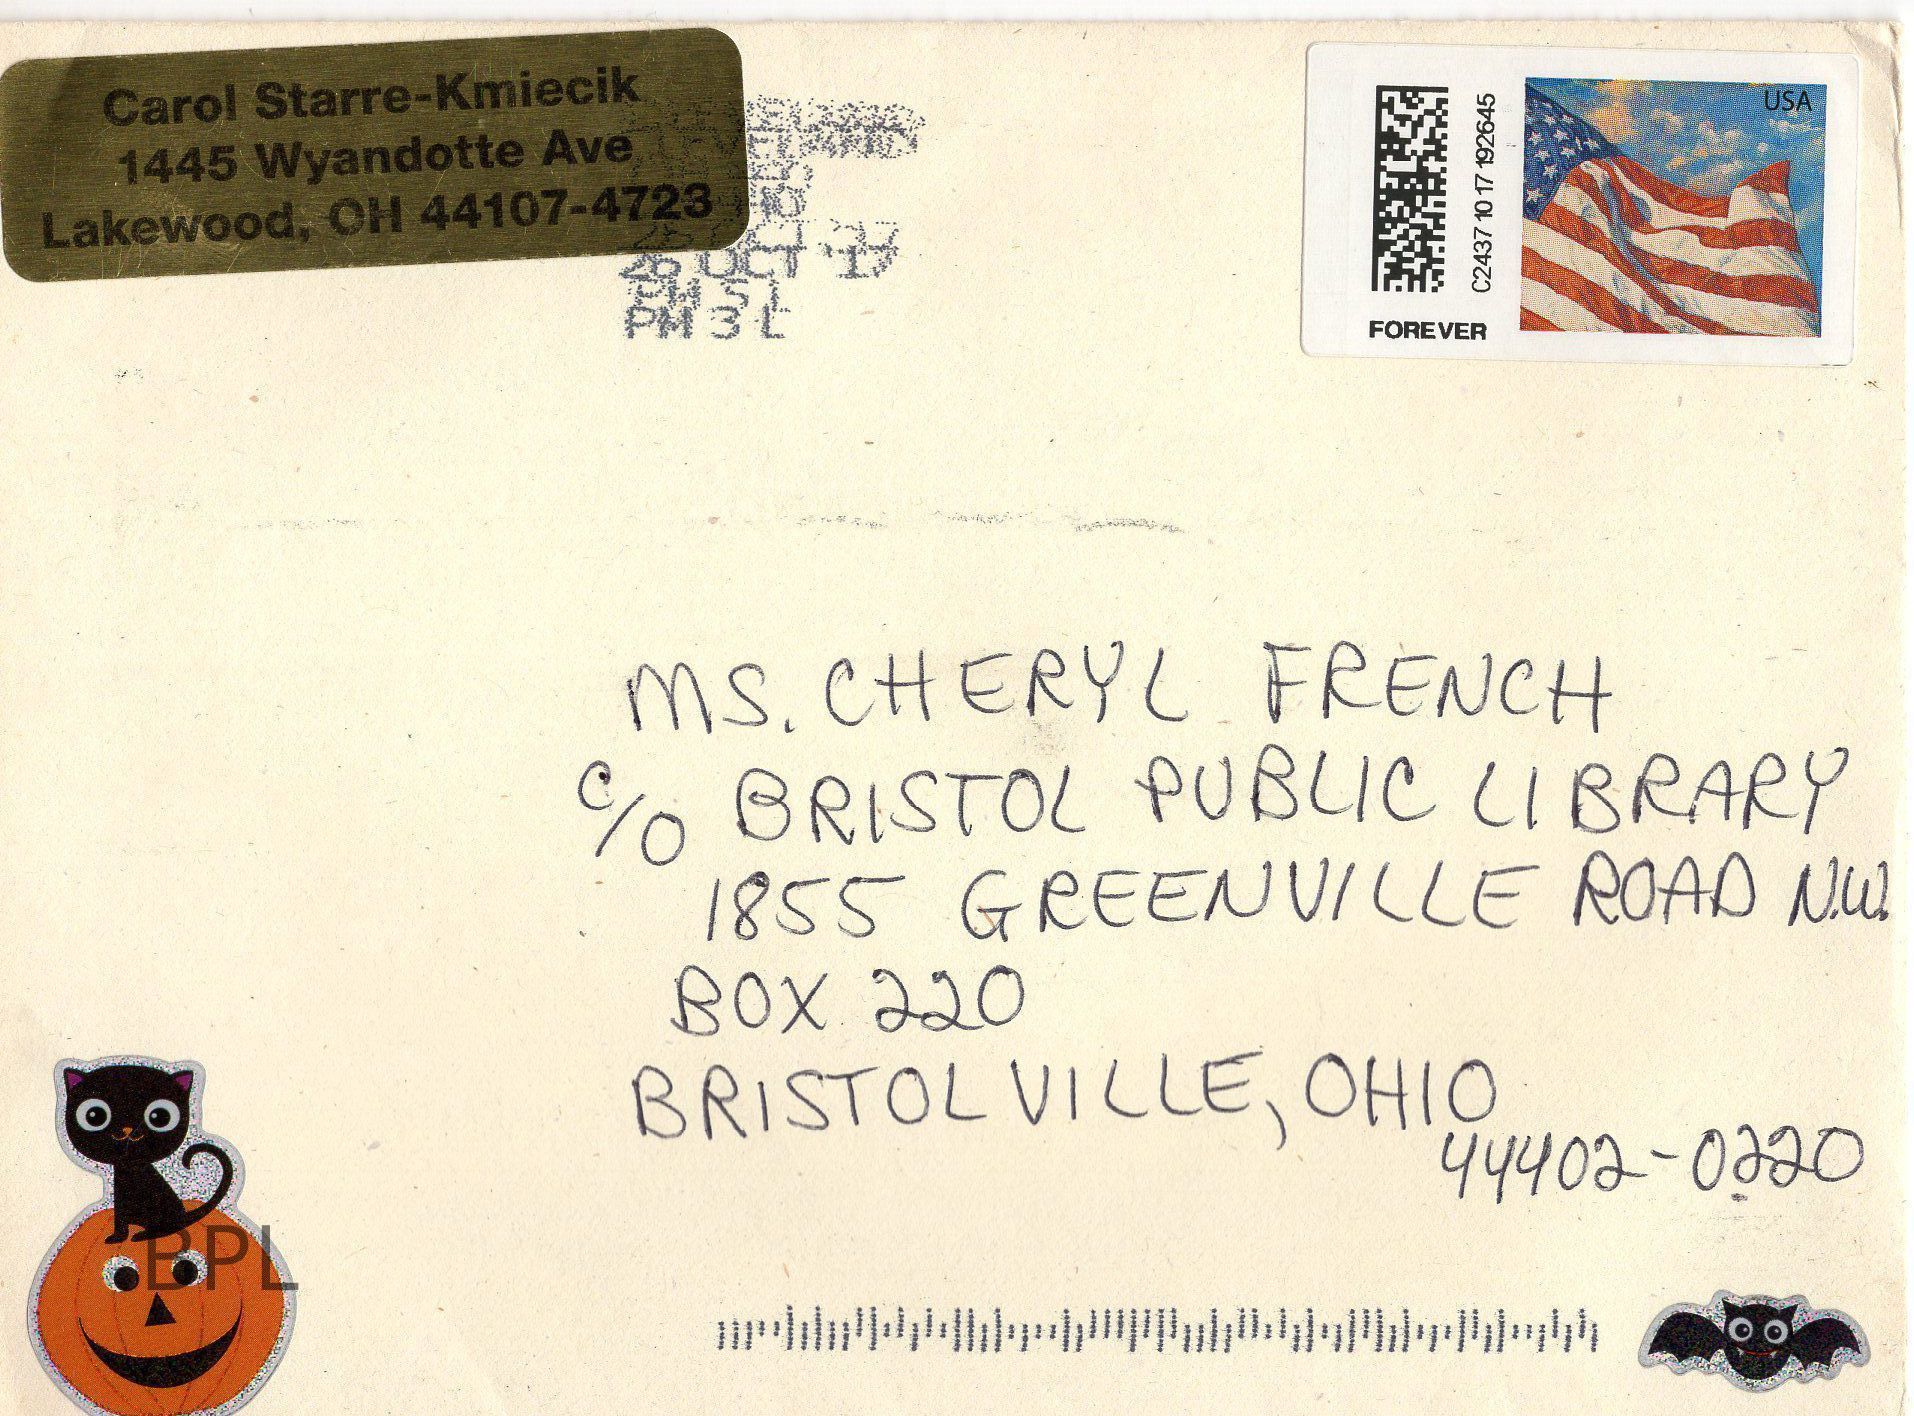 Carol Starre-Kmiecik
1445 Wyandotte Ave
Lakewood, OH 44107-4723
26 OCT '17
PM 3 L
USA
C2437 10 17 192645
FOREVER
MS. CHERYL FRENCH
C/O BRISTOL PUBLIC LIBRARY
1855 GREENVILLE ROAD N.W.
BOX 220
BRISTOLVILLE, OHIO
44402-0220
BPL